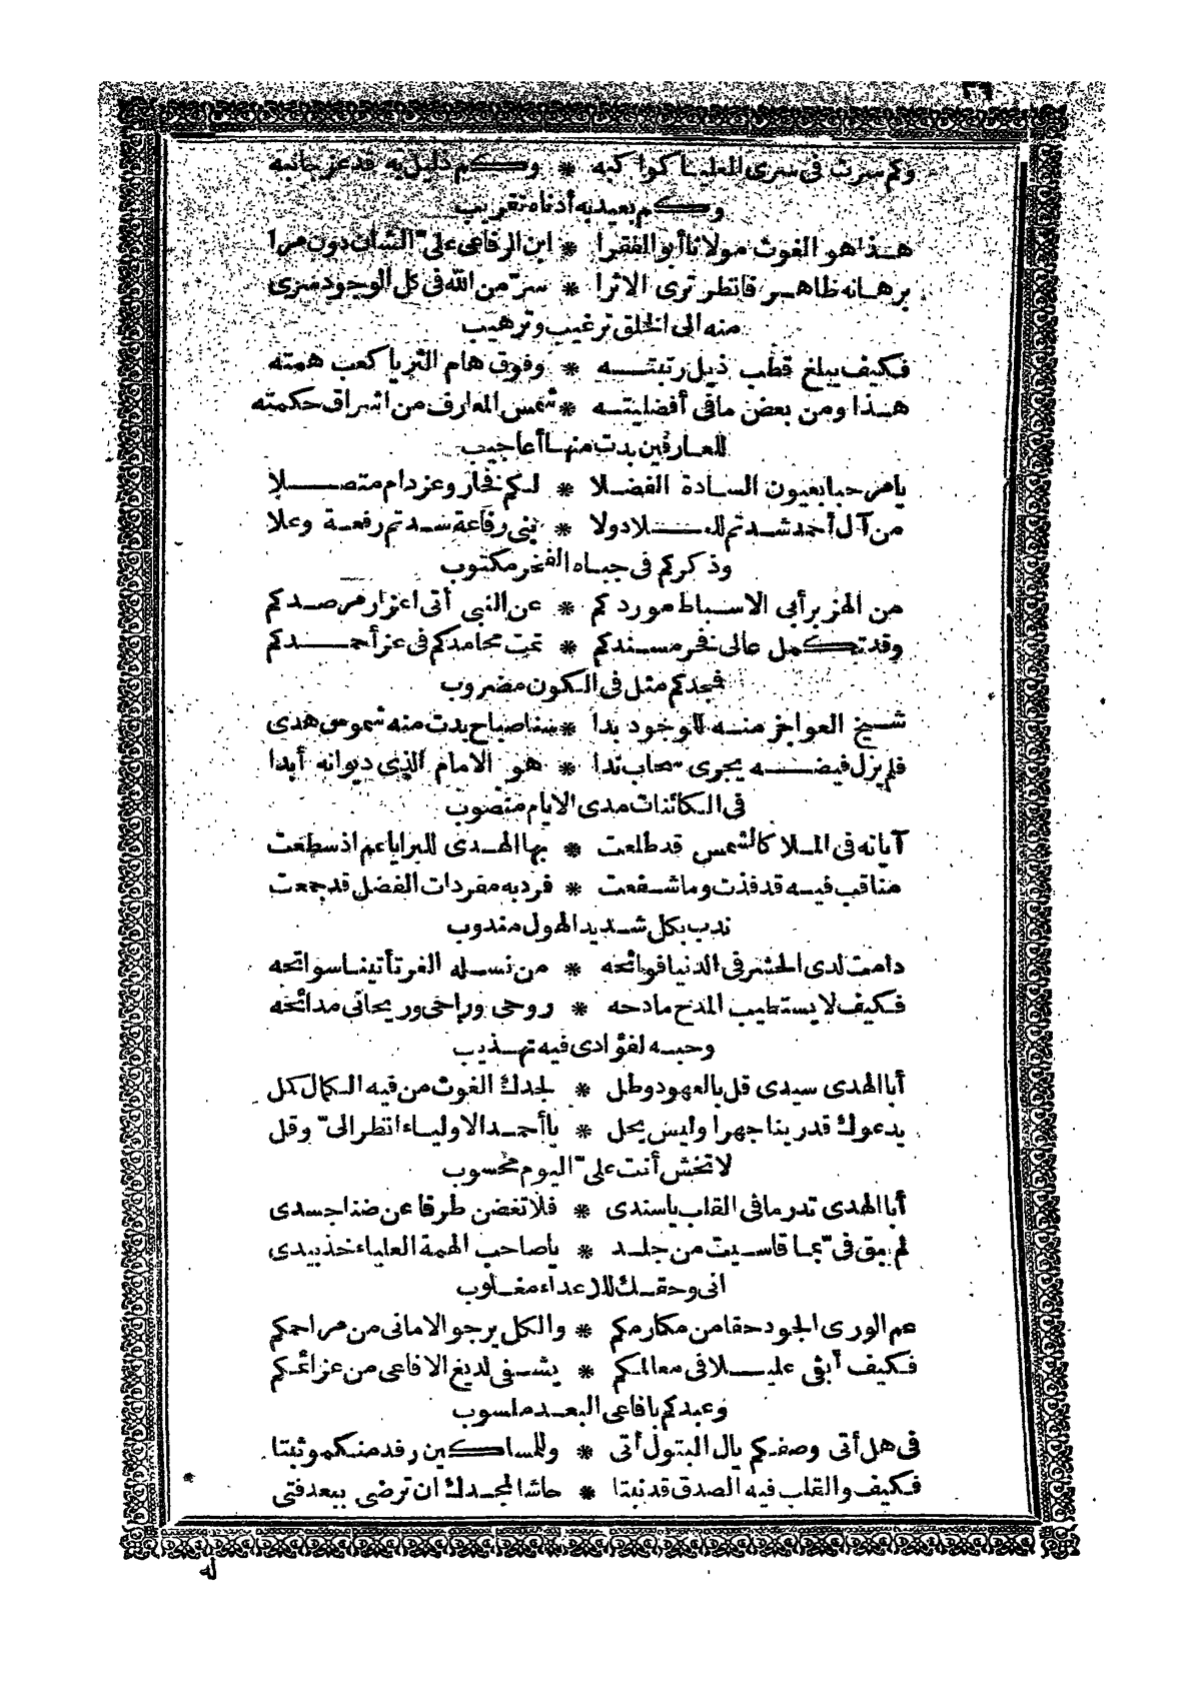 ٢٦
وكم سرت في سرى للعليا كواكبه * وكم ذليل به قد عز جانبه
وكم بعيد به أدناه تقريب
هذا هو الغوث مولانا أبو الفقرا * ابن الرفاعى علىّ الشان دون مرا
برهانه ظاهر فانظر ترى الاثرا * سرّ من الله فى كل الوجود سرى
منه الى الخلق ترغيب وترهيب
فكيف يبلغ قطب ذيل رتبته * وفوق هام الثريا كعب همته
هذا ومن بعض ما فى أفضليته * شمس المعارف من اشراق حكمته
للعارفين بدت منها أعاجيب
يا مرحبا بعيون السادة الفضلا * لكم فخار وعز دام متصلا
من آل أحمد شدتم للعلا دولا * بنى رفاعة سدتم رفعة وعلا
وذكركم فى جباه الفخر مكتوب
من الهزبر أبى الاسباط موردكم * عن النبى أتى اعزاز مرصدكم
وقد تكمل عالى فخر مسندكم * تمت محامدكم فى عز أحمدكم
فمجدكم مثل فى الكون مضروب
شيخ العواجز منه للوجود بدا * سنا صباح بدت منه شموس هدى
فلم يزل فيضه يجرى سحاب ندا * هو الامام الذى ديوانه أبدا
فى الكائنات مدى الايام منصوب
آياته فى الملا كالشمس قد طلعت * بها الهدى للبرايا عم اذ سطعت
مناقب فيه قد فذت وما شفعت * فرد به مفردات الفضل قد جمعت
ندب بكل شديد الهول مندوب
دامت لدى الحشر فى الدنيا فوائحه * من نسله الغر تأتينا سوانحه
فكيف لا يستطيب المدح مادحه * روحى وراحى وريحانى مدائحه
وحبه لفؤادى فيه تهذيب
أبا الهدى سيدى قل بالعهود وطل * لجدك الغوث من فيه الكمال كمل
يدعوك قد ربنا جهرا وليس يحل * يا أحمد الاولياء انظر الىّ وقل
لا تخش أنت علىّ اليوم محسوب
أبا الهدى تدر ما فى القلب يا سندى * فلا تغضن طرفا عن ضنا جسدى
لم يبق فىّ بما قاسيت من جلد * يا صاحب الهمة العلياء خذ بيدى
انى وحقك للاعداء مغلوب
عم الورى الجود حقا من مكارمكم * والكل يرجو الامانى من مراحمكم
فكيف أبقى عليلا فى معالمكم * يشفى لديغ الافاعى من عزائمكم
وعبدكم بافاعى البعد ملسوب
فى هل أتى وصفكم يال البتول أتى * وللمساكين رفد منكمو ثبتا
فكيف والقلب فيه الصدق قد نبتا * حاشا لمجدك ان ترضى ببعد فتى
له